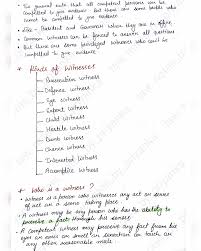 • The general rule that all competent persons can be
compelled to give evidence. But there are some people who
cannot be compelled to give evidence
• Like - President and Governor when they are in office
• Common witnesses can be forced to answer all questions
• But there are some privileged witnesses who could be
compelled to give evidence
* Kinds of Witnesses
Prosecution witness
Defence witness
Eye witness
Expert witness
Child witness
Hostile witness
Dumb witness
Chance witness
Interested witness
Accomplice witness
* Who is a witness ?
• Witness is a person who witnesses any act or series
of act or a scene taking place
• A witness may be any person who has the ability to
perceive a fact through his senses
• A competent witness may perceive any fact from his
eye or ears or smell or sensation or touch or
any other reasonable mode